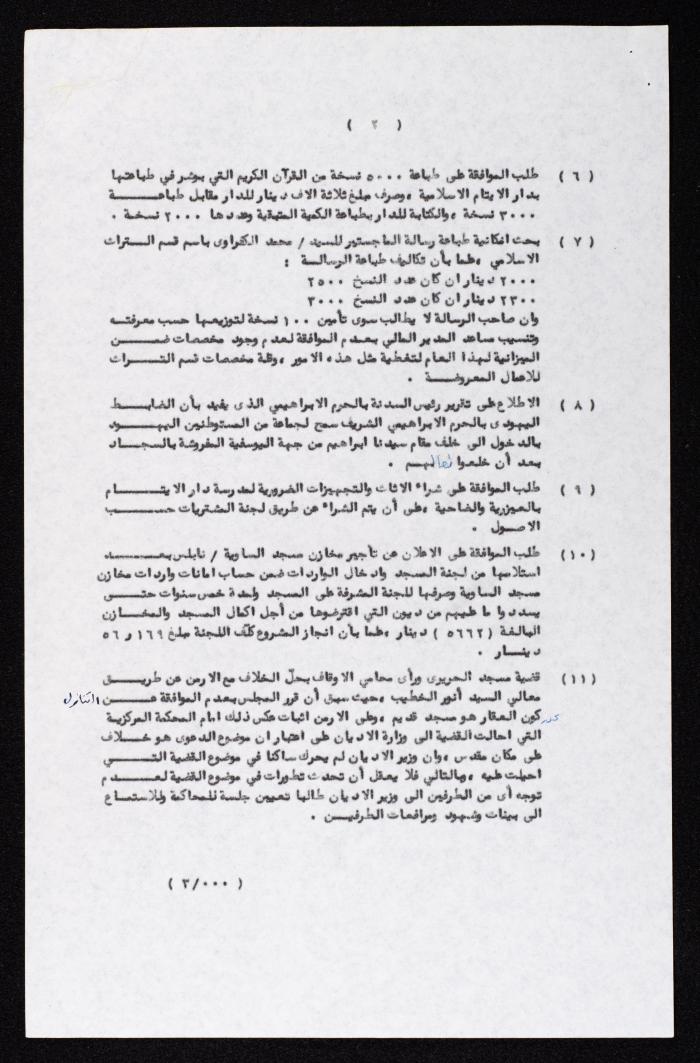 ( ٢ )
( ٦ ) طلب الموافقة على طباعة ٥٠٠٠ نسخة من القرآن الكريم التي بوشر في طباعتها
بدار الايتام الاسلامية ، وصرف مبلغ ثلاثة الاف دينار للدار مقابل طباعة
٣٠٠٠ نسخة ، والكتابة للدار بطباعة الكمية المتبقية وعددها ٢٠٠٠ نسخة .
( ٧ ) بحث امكانية طباعة رسالة الماجستير للسيد / محمد الكفراوى باسم قسم التراث
الاسلامي ، علما بأن تكاليف طباعة الرسالة :
٢٠٠٠ دينار ان كان عدد النسخ ٢٥٠٠
٢٣٠٠ دينار ان كان عدد النسخ ٣٠٠٠
وان صاحب الرسالة لا يطالب سوى تأمين ١٠٠ نسخة لتوزيعها حسب معرفته
وتنسيب مساعد المدير المالي بعدم الموافقة لعدم وجود مخصصات ضمن
الميزانية لهذا العام لتغطية مثل هذه الامور ، وقلة مخصصات قسم التراث
للاعمال المعروضة .
( ٨ ) الاطلاع على تقرير رئيس السدنة بالحرم الابراهيمي الذى يفيد بأن الضابط
اليهودى بالحرم الابراهيمي الشريف سمح لجماعة من المستوطنين اليهود
بالدخول الى خلف مقام سيدنا ابراهيم من جهة اليوسفية المفروشة بالسجاد
بعد أن خلعوا نعالهم .
( ٩ ) طلب الموافقة على شراء الاثاث والتجهيزات الضرورية لمدرسة دار الايتام
بالعيزرية والضاحية ، على أن يتم الشراء عن طريق لجنة المشتريات حسب
الاصول .
(١٠) طلب الموافقة على الاعلان عن تأجير مخازن مسجد الساوية / نابلس بعد
استلامها من لجنة المسجد وادخال الواردات ضمن حساب امانات واردات مخازن
مسجد الساوية وصرفها للجنة المشرفة على المسجد ولمدة خمس سنوات حتى
يسددوا ما عليهم من ديون التي اقترضوها من أجل اكمال المسجد والمخازن
البالغة (٥٦٦٢) دينار ، علما بأن انجاز المشروع كلّف اللجنة مبلغ ١٦٩ر٥٦
دينار .
(١١) قضية مسجد الحريرى ورأى محامي الاوقاف بحلّ الخلاف مع الارمن عن طريق
معالي السيد أنور الخطيب ، حيث سبق أن قرر المجلس بعدم الموافقة عن التنازل
كون العقار هو مسجد قديم ، وعلى الارمن اثبات عكس ذلك امام المحكمة المركزية
التي احالت القضية الى وزارة الاديان على اعتبار ان موضوع الدعوى هو خلاف
على مكان مقدس ، وان وزير الاديان لم يحرك ساكنا في موضوع القضية التي
احيلت عليه ، وبالتالي فلا يعقل أن تحدث تطورات في موضوع القضية لعدم
توجه أى من الطرفين الى وزير الاديان طالبا تعيين جلسة للمحاكمة وللاستماع
الى بينات وشهود ومرافعات الطرفين .
( ٣/٠٠٠ )